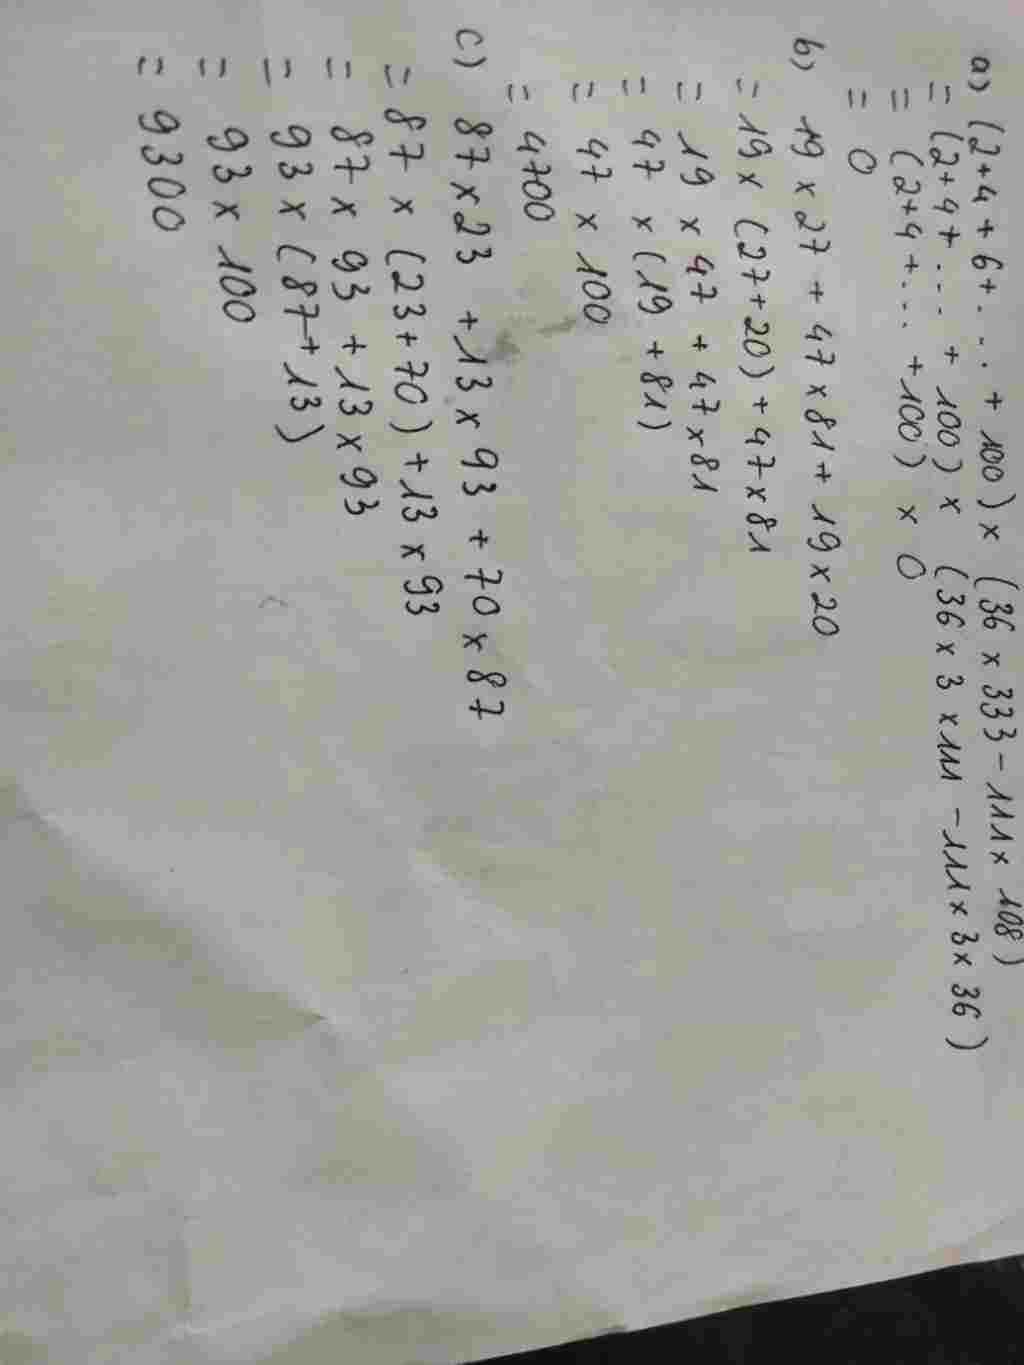 a) (2+4+6+...+100) x (36 x 333 - 111 x 108)
= (2+4+...+100) x (36 x 3 x 111 - 111 x 3 x 36)
= (2+4+...+100) x 0
= 0
b) 19 x 27 + 47 x 81 + 19 x 20
= 19 x (27+20) + 47 x 81
= 19 x 47 + 47 x 81
= 47 x (19 + 81)
= 47 x 100
= 4700
c) 87 x 23 + 13 x 93 + 70 x 87
= 87 x (23+70) + 13 x 93
= 87 x 93 + 13 x 93
= 93 x (87+13)
= 93 x 100
= 9300